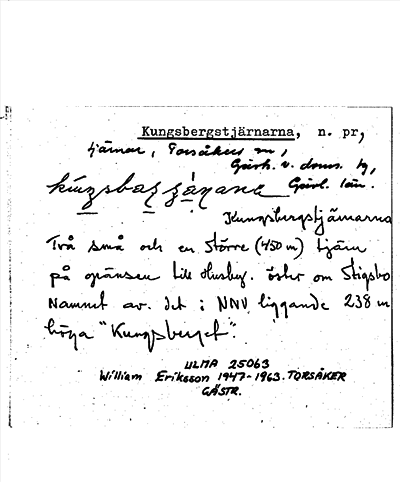 Kungsbergstjärnarna, n. pr,
tjärnar, Torsåkers sn,
Gästr. v. doms. tg,
Gävl. län.
Kungsbergstjärnarna
Två små och en större (450 m) tjärn
på gränsen till Husby. öster om Stigsbo
Namnet av det i NNV liggande 238 m
höga "Kungsberget".
ULMA 25063
William Eriksson 1947-1963. TORSÅKER
GÄSTR.